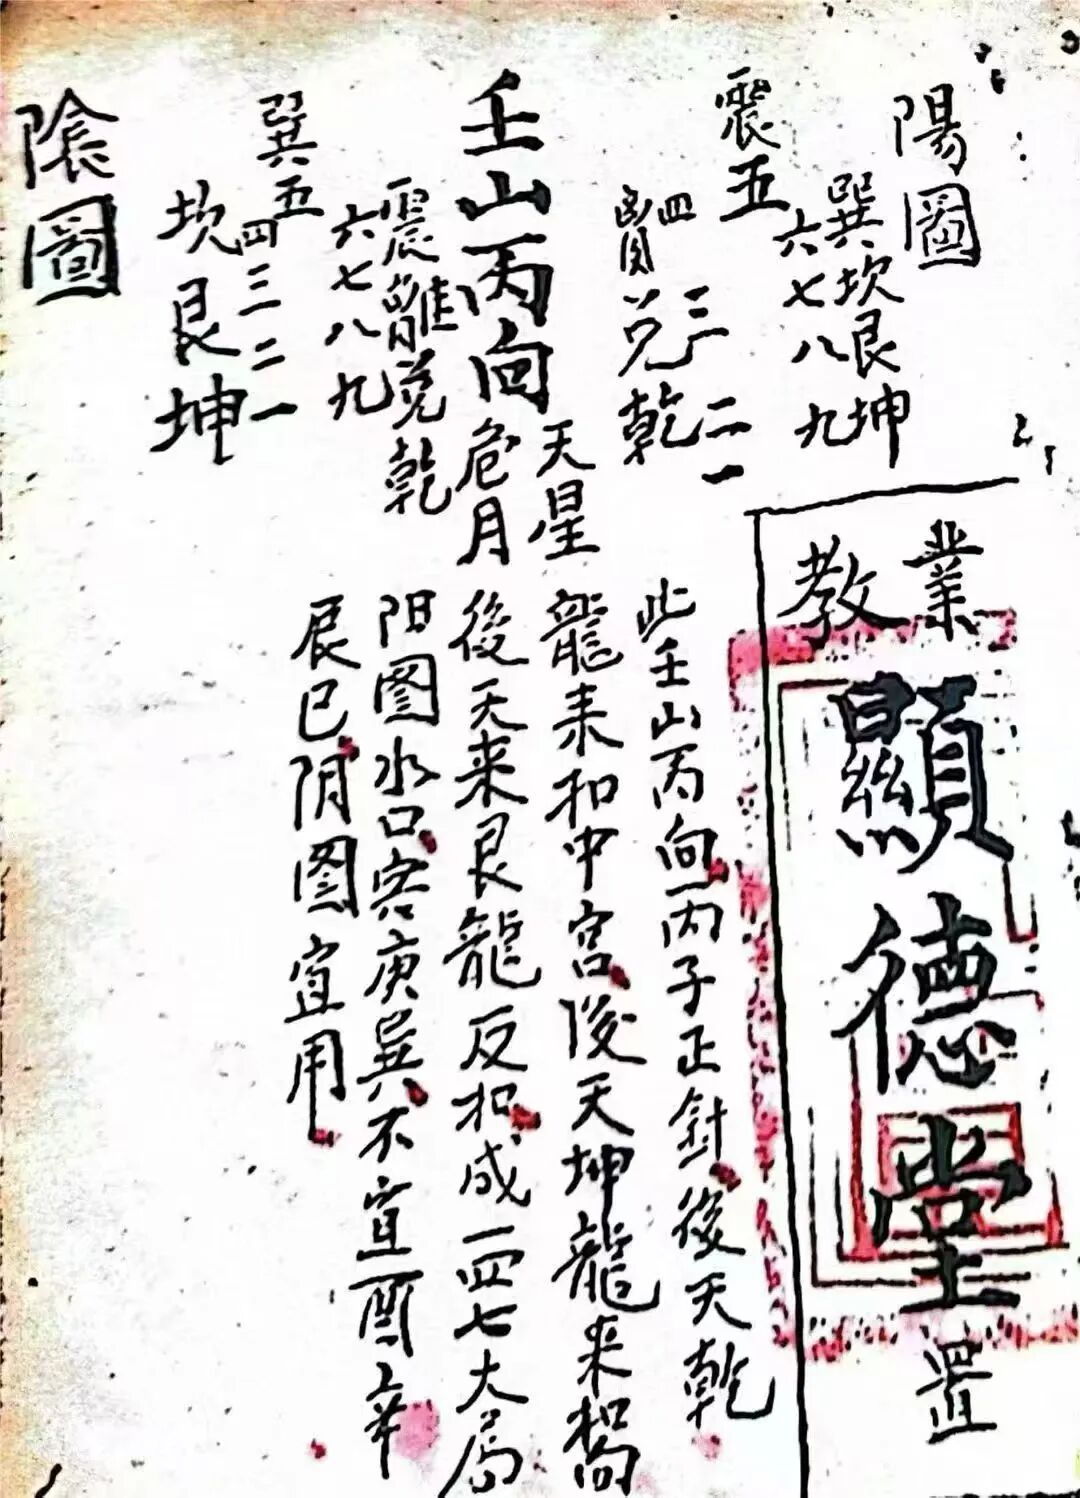 陽圖
巽坎艮坤
六七八九
震五
四三二一
兑乾
壬山丙向
天星
危月
震離兑乾
六七八九
巽五
四三二一
坎艮坤
陰圖
業
教
顯德堂置
此壬山丙向丙子正針後天乾
龍来和中宮後天坤龍来
後天来艮龍反和成一四七大局
阳图水口害庚巽不宜酉辛
辰巳阴图宜用